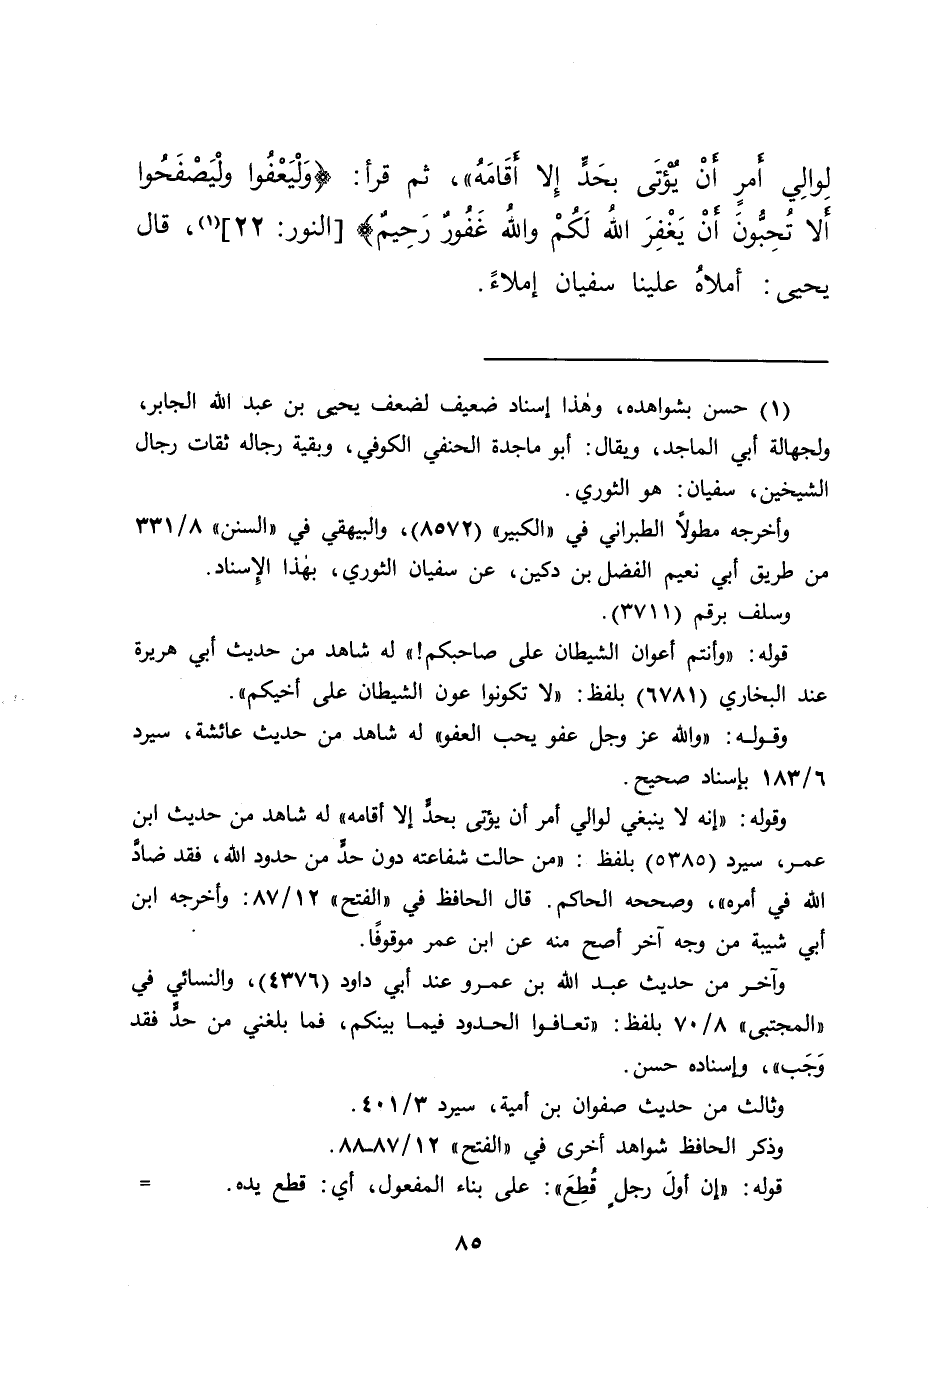 لِوالِي أَمرٍ أَنْ يُؤْتَى بحَدٍّ إلا أَقَامَهُ»، ثم قرأ: ﴿وَلْيَعْفُوا ولْيَصْفَحُوا
أَلا تُحِبُّونَ أَنْ يَغْفِرَ اللهُ لَكُمْ واللهُ غَفُورٌ رَحِيمٌ﴾ [النور: ٢٢](١)، قال
يحيى: أملاهُ علينا سفيان إملاءً.
(١) حسن بشواهده، وهٰذا إسناد ضعيف لضعف يحيى بن عبد الله الجابر،
ولجهالة أبي الماجد، ويقال: أبو ماجدة الحنفي الكوفي، وبقية رجاله ثقات رجال
الشيخين، سفيان: هو الثوري.
وأخرجه مطولاً الطبراني في «الكبير» (٨٥٧٢)، والبيهقي في «السنن» ٣٣١/٨
من طريق أبي نعيم الفضل بن دكين، عن سفيان الثوري، بهٰذا الإسناد.
وسلف برقم (٣٧١١).
قوله: «وأنتم أعوان الشيطان على صاحبكم!» له شاهد من حديث أبي هريرة
عند البخاري (٦٧٨١) بلفظ: «لا تكونوا عون الشيطان على أخيكم».
وقوله: «والله عز وجل عفو يحب العفو» له شاهد من حديث عائشة، سيرد
١٨٣/٦ بإسناد صحيح.
وقوله: «إنه لا ينبغي لوالي أمر أن يؤتى بحدٍّ إلا أقامه» له شاهد من حديث ابن
عمر، سيرد (٥٣٨٥) بلفظ : «من حالت شفاعته دون حدٍّ من حدود الله، فقد ضادَّ
الله في أمره»، وصححه الحاكم. قال الحافظ في «الفتح» ٨٧/١٢: وأخرجه ابن
أبي شيبة من وجه آخر أصح منه عن ابن عمر موقوفًا.
وآخر من حديث عبد الله بن عمرو عند أبي داود (٤٣٧٦)، والنسائي في
«المجتبى» ٧٠/٨ بلفظ: «تعافوا الحدود فيما بينكم، فما بلغني من حدٍّ فقد
وَجَب»، وإسناده حسن.
وثالث من حديث صفوان بن أمية، سيرد ٤٠١/٣.
وذكر الحافظ شواهد أخرى في «الفتح» ٨٧/١٢ـ٨٨.
قوله: «إن أولَ رجلٍ قُطِعَ»: على بناء المفعول، أي: قطع يده. =
٨٥